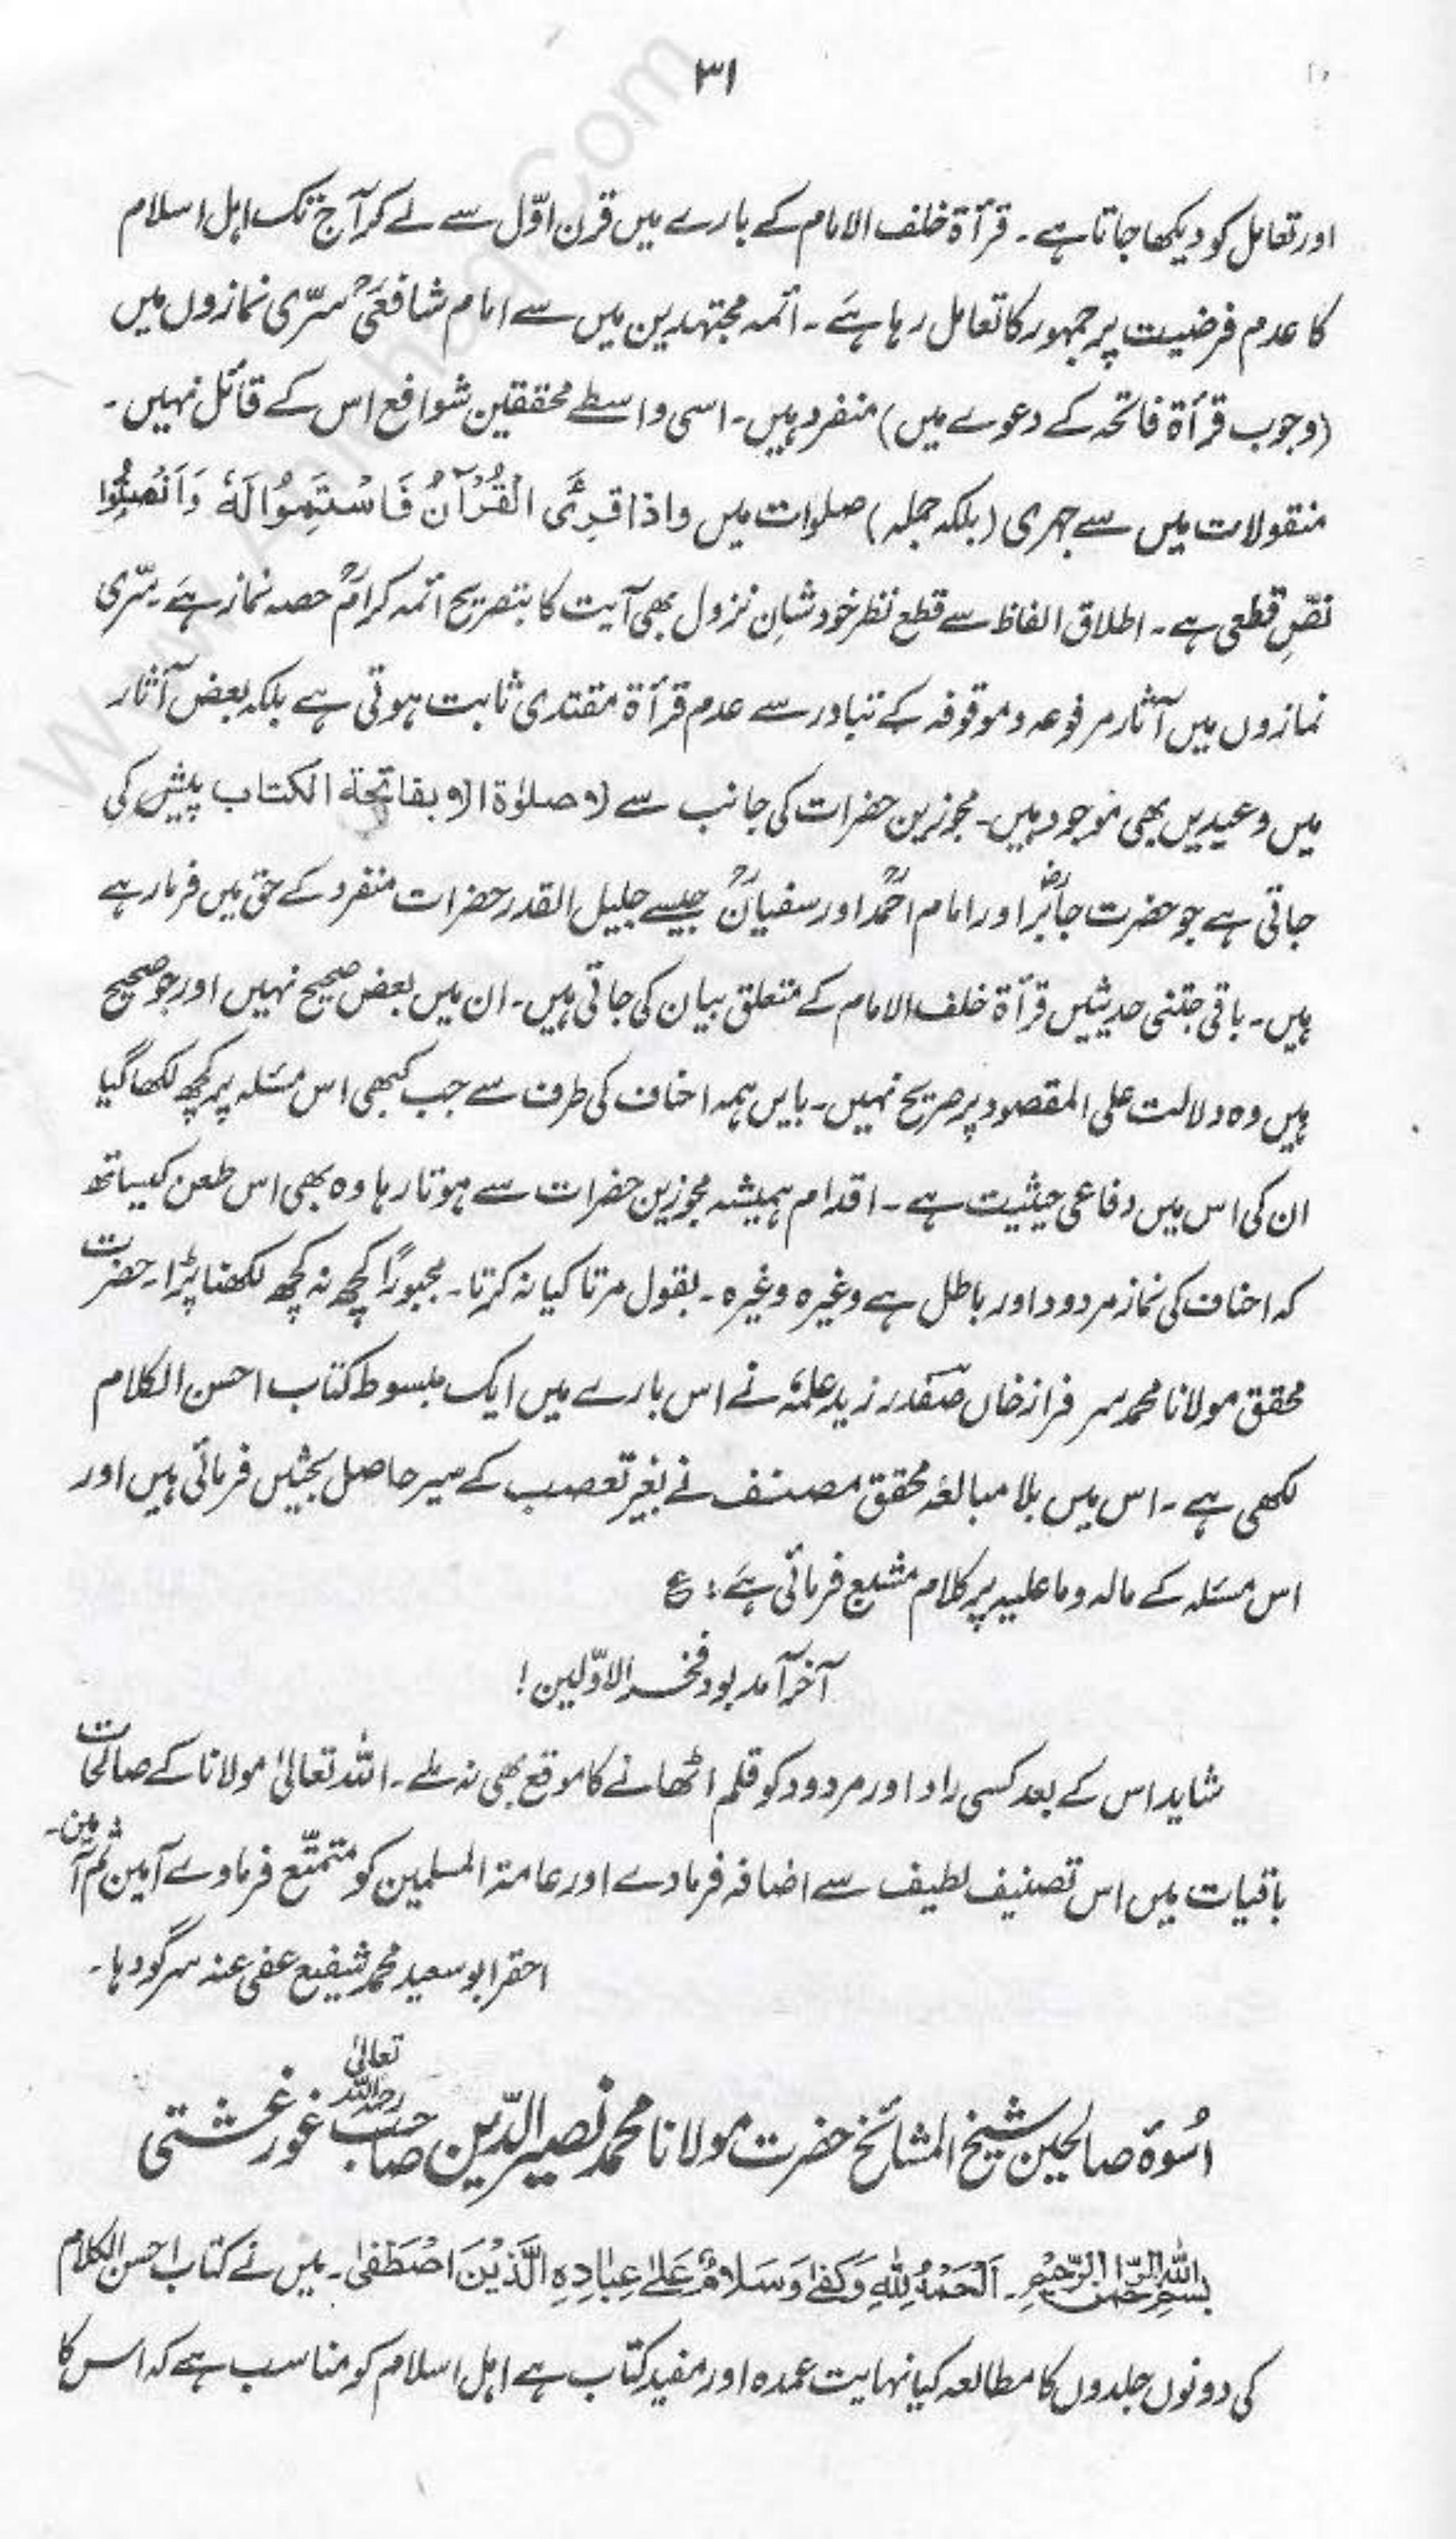 ۳۱
اور تعامل کو دیکھا جاتا ہے۔ قرأۃ خلف الامام کے بارے میں قرن اوّل سے لے کر آج تک اہل اسلام
کا عدم فرضیت پر جمہور کا تعامل رہا ہے۔ ائمہ مجتہدین میں سے امام شافعیؒ سرّی نمازوں میں
(وجوب قرأۃ فاتحہ کے دعوے میں) منفرد ہیں۔ اسی واسطے محققین شوافع اس کے قائل نہیں۔
منقولات میں سے جہری (بلکہ جملہ) صلوات میں واذا قرِئَ الْقُرْآنُ فَاسْتَمِعُوْا لَهٗ وَاَنْصِتُوْا
نصِّ قطعی ہے۔ اطلاق الفاظ سے قطع نظر خود شانِ نزول بھی آیت کا بتصریح ائمہ کرامؒ حصہ نماز ہے۔ سّری
نمازوں میں آثار مرفوعہ و موقوفہ کے تبادر سے عدم قرأۃ مقتدی ثابت ہوتی ہے بلکہ بعض آثار
میں وعیدیں بھی موجود ہیں۔ مجوزین حضرات کی جانب سے لا صلوٰۃ الا بفاتحة الکتاب پیش کی
جاتی ہے جو حضرت جابرؓ اور امام احمدؒ اور سفیانؒ جیسے جلیل القدر حضرات منفرد کے حق میں فرما رہے
ہیں۔ باقی جتنی حدیثیں قرأۃ خلف الامام کے متعلق بیان کی جاتی ہیں۔ ان میں بعض صحیح نہیں اور جو صحیح
ہیں وہ دلالت علی المقصود پر صریح نہیں۔ بایں ہمہ احناف کی طرف سے جب کبھی اس مسئلہ پر کچھ لکھا گیا
ان کی اس میں دفاعی حیثیت ہے۔ اقدام ہمیشہ مجوزین حضرات سے ہوتا رہا وہ بھی اس طعن کیساتھ
کہ احناف کی نماز مردود اور باطل ہے وغیرہ وغیرہ۔ بقول مرتا کیا نہ کرتا۔ مجبوراً کچھ نہ کچھ لکھنا پڑا۔ حضرت
محقق مولانا محمد سرفراز خاں صفدر زید علمہٗ نے اس بارے میں ایک مبسوط کتاب احسن الکلام
لکھی ہے۔ اس میں بلا مبالغہ محقق مصنف نے بغیر تعصب کے سیر حاصل بحثیں فرمائی ہیں اور
اس مسئلہ کے مالہ وما علیہ پر کلام مشبع فرمائی ہے؛ ع
آخر آمد بود فخر الاوّلین!
شاید اس کے بعد کسی راد اور مردود کو قلم اٹھانے کا موقع بھی نہ ملے۔ اللہ تعالیٰ مولانا کے صالحات
باقیات میں اس تصنیف لطیف سے اضافہ فرمادے اور عامۃ المسلمین کو متمتّع فرماوے آمین ثم آمین۔
احقر ابو سعید محمد شفیع عفی عنہ سرگودہا۔
اسُوۃ صالحین شیخ المشائخ حضرت مولانا محمد نصیر الدّین صاحب رحمہ اللہ تعالیٰ غورغشتی
بسم اللہ الرّحمٰن الرّحیم۔ اَلْحَمْدُ لِلّٰہِ وَکَفٰی وَسَلَامٌ عَلٰی عِبَادِہِ الَّذِیْنَ اصْطَفٰی۔ میں نے کتاب احسن الکلام
کی دونوں جلدوں کا مطالعہ کیا نہایت عمدہ اور مفید کتاب ہے اہل اسلام کو مناسب ہے کہ اس کا